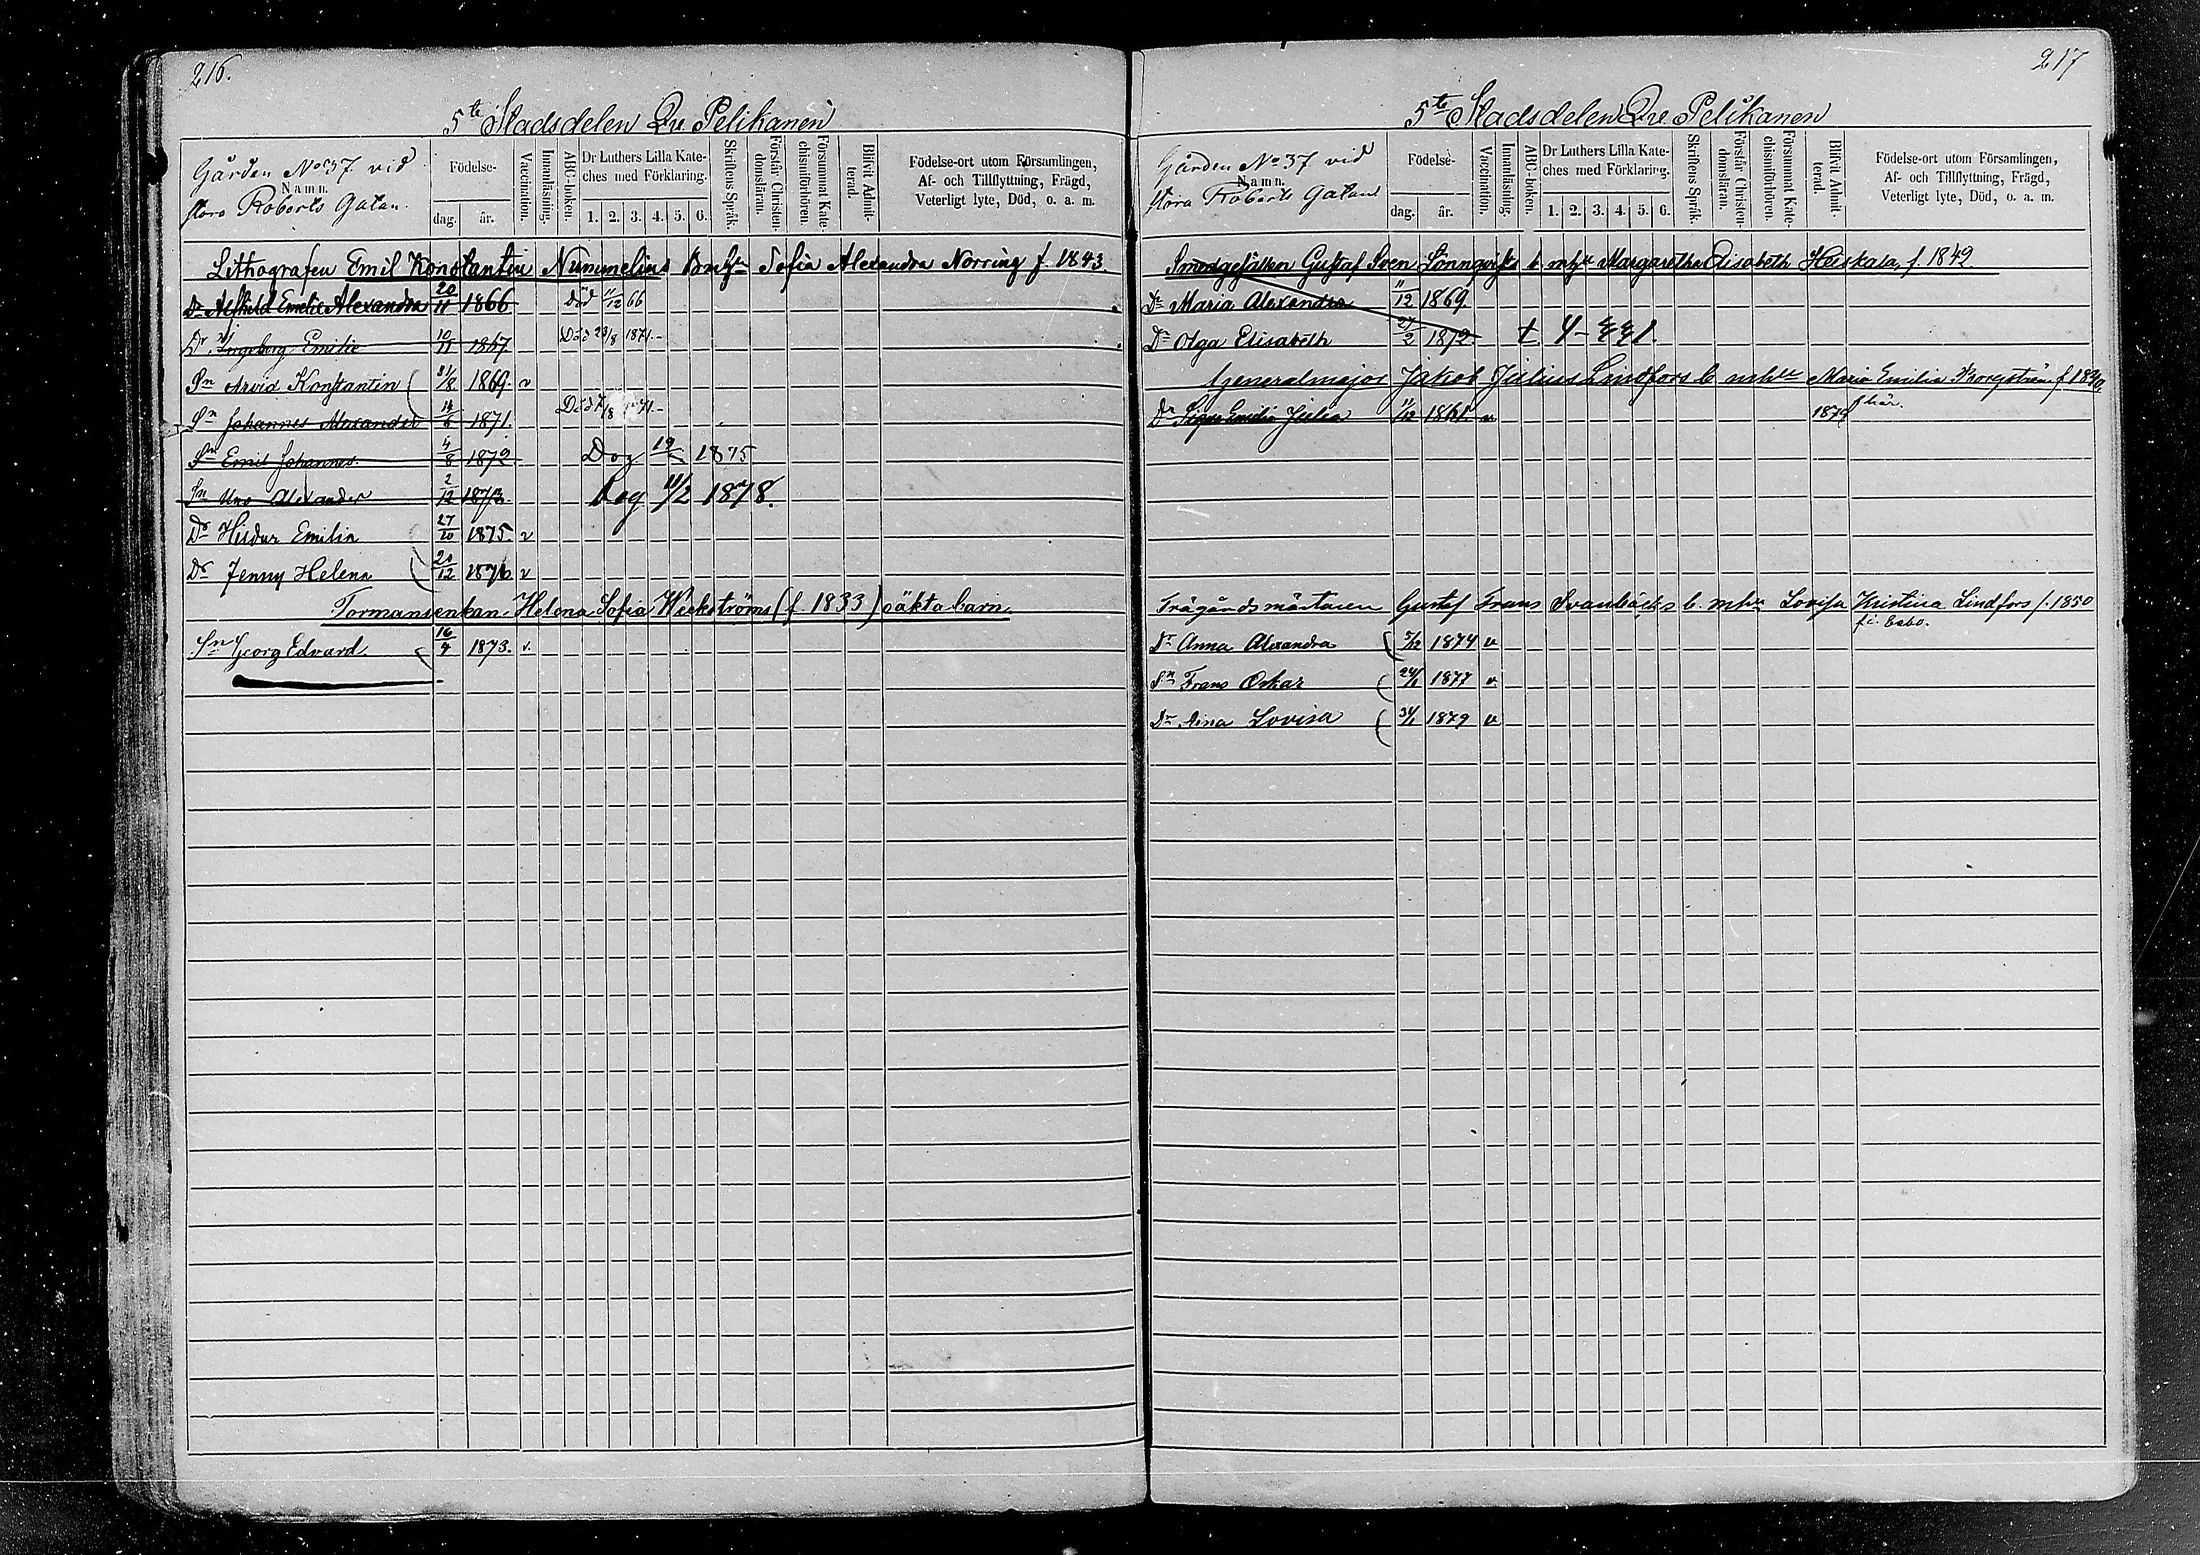 216.
5te Stadsdelen Qv. Pelikanen
Gården No 37 vid
Namn.
stora Roberts Gatan.
Födelse-
dag. år.
Vaccination.
Innanläsning.
ABC-boken.
Dr Luthers Lilla Kate-
ches med Förklaring.
1. 2. 3. 4. 5. 6.
Skriftens Språk.
Förstår Christen-
domsläran.
Försummat Kate-
chismiförhören.
Blifvit Admit-
terad.
Födelse-ort utom Församlingen,
Af- och Tillflyttning, Frägd,
Veterligt lyte, Död, o. a. m.
Lithografen Emil Konstantin Nummelins Sofia Alexandra Norring f 1843.
Dr Alfhild Emelie Alexandra 20/11 1866 Död 11/12 66
Dr Ingeborg Emilie 10/11 1867 Död 23/8 1871.
Sn Arvid Konstantin 31/8 1869. v
Sn Johannes Alexander 1871.
Sn Emil Johannes. 4/8 1872 Dog 1875
Sn Uno Alexander 2/12 1873. Dog 11/2 1878.
Dr Heidur Emilia 27/10 1875. v
Dr Jenny Helena 20/12 1876 v
Formansenkan Helena Sofia Weckströms (f. 1833) oäkta barn.
Sn Georg Edvard. 16/4 1873. v.
217
5te Stadsdelen Qv. Pelikanen
Gården No 37 vid
Namn.
stora Roberts Gatan
Födelse-
dag. år.
Vaccination.
Innanläsning.
ABC-boken.
Dr Luthers Lilla Kate-
ches med Förklaring.
1. 2. 3. 4. 5. 6.
Skriftens Språk.
Förstår Christen-
domsläran.
Försummat Kate-
chismiförhören.
Blifvit Admit-
terad.
Födelse-ort utom Församlingen,
Af- och Tillflyttning, Frägd,
Veterligt lyte, Död, o. a. m.
Smedgesällen Gustaf Sven Lönnqvists b mhu Margaretha Elisabeth Heiskala, f. 1842
Dr Maria Alexandra 11/12 1869
Dr Olga Elisabeth 27/2 1872
Generalmajor Jakob Julius Lindfors b mhu Maria Emilia Borgström f 1840
här.
Dr Signe Emilia Julia 11/12 1861. v 1879
Trägårdsmästaren Gustaf Frans Svanbäcks b. mhu Lovisa Kristina Lindfors f. 1850
f. i. Esbo.
Dr Anna Alexandra 5/12 1874 v
Sn Frans Oskar 24/1 1877 v.
Dr Aina Lovisa 31/1 1879 v